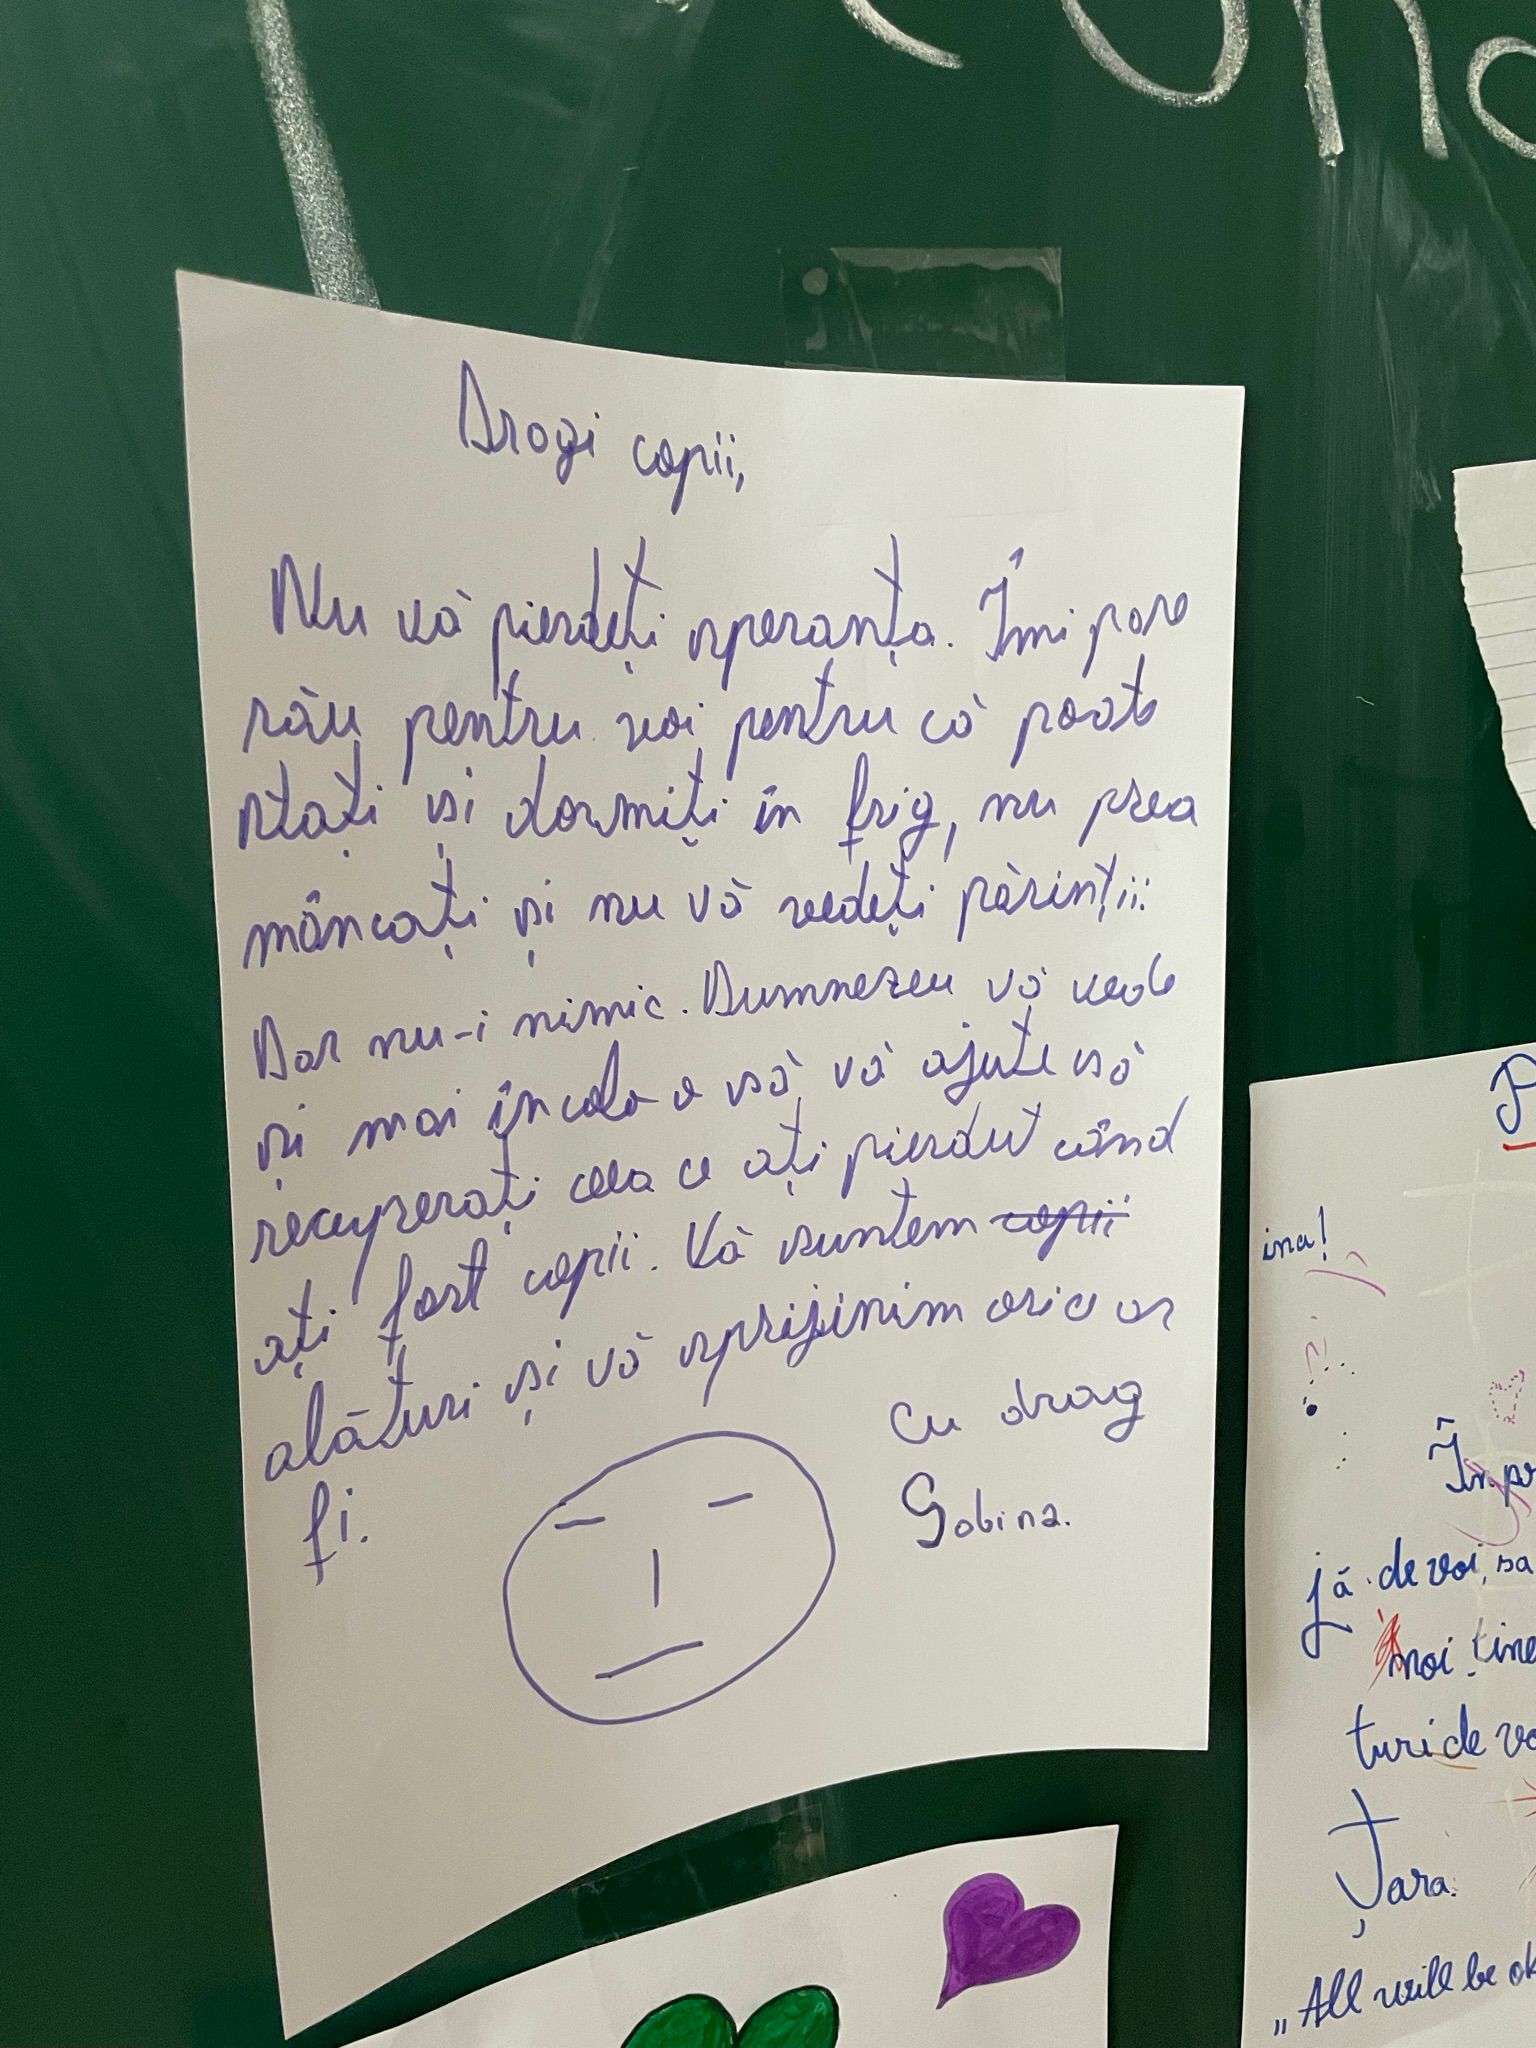 Dragi copii,
Nu vă pierdeți speranța. Îmi pare
rău pentru voi pentru că poate
stați și dormiți în frig, nu prea
mâncați și nu vă vedeți părinții.
Dar nu-i nimic. Dumnezeu vă vede
și mai încolo o să vă ajute să
recuperați ceea ce ați pierdut când
ați fost copii. Vă suntem copii
alături și vă sprijinim orice ar
fi.
Cu drag
ina!
jă de voi, sa
noi, ține
turi de vo
Țara.
„All will be ok